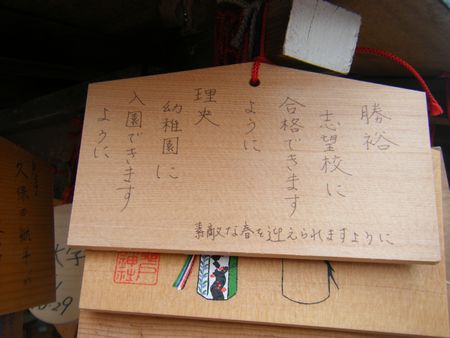 勝裕
志望校に
合格できます
ように
理央
幼稚園に
入園できます
ように
素敵な春を迎えられますように
神社
29